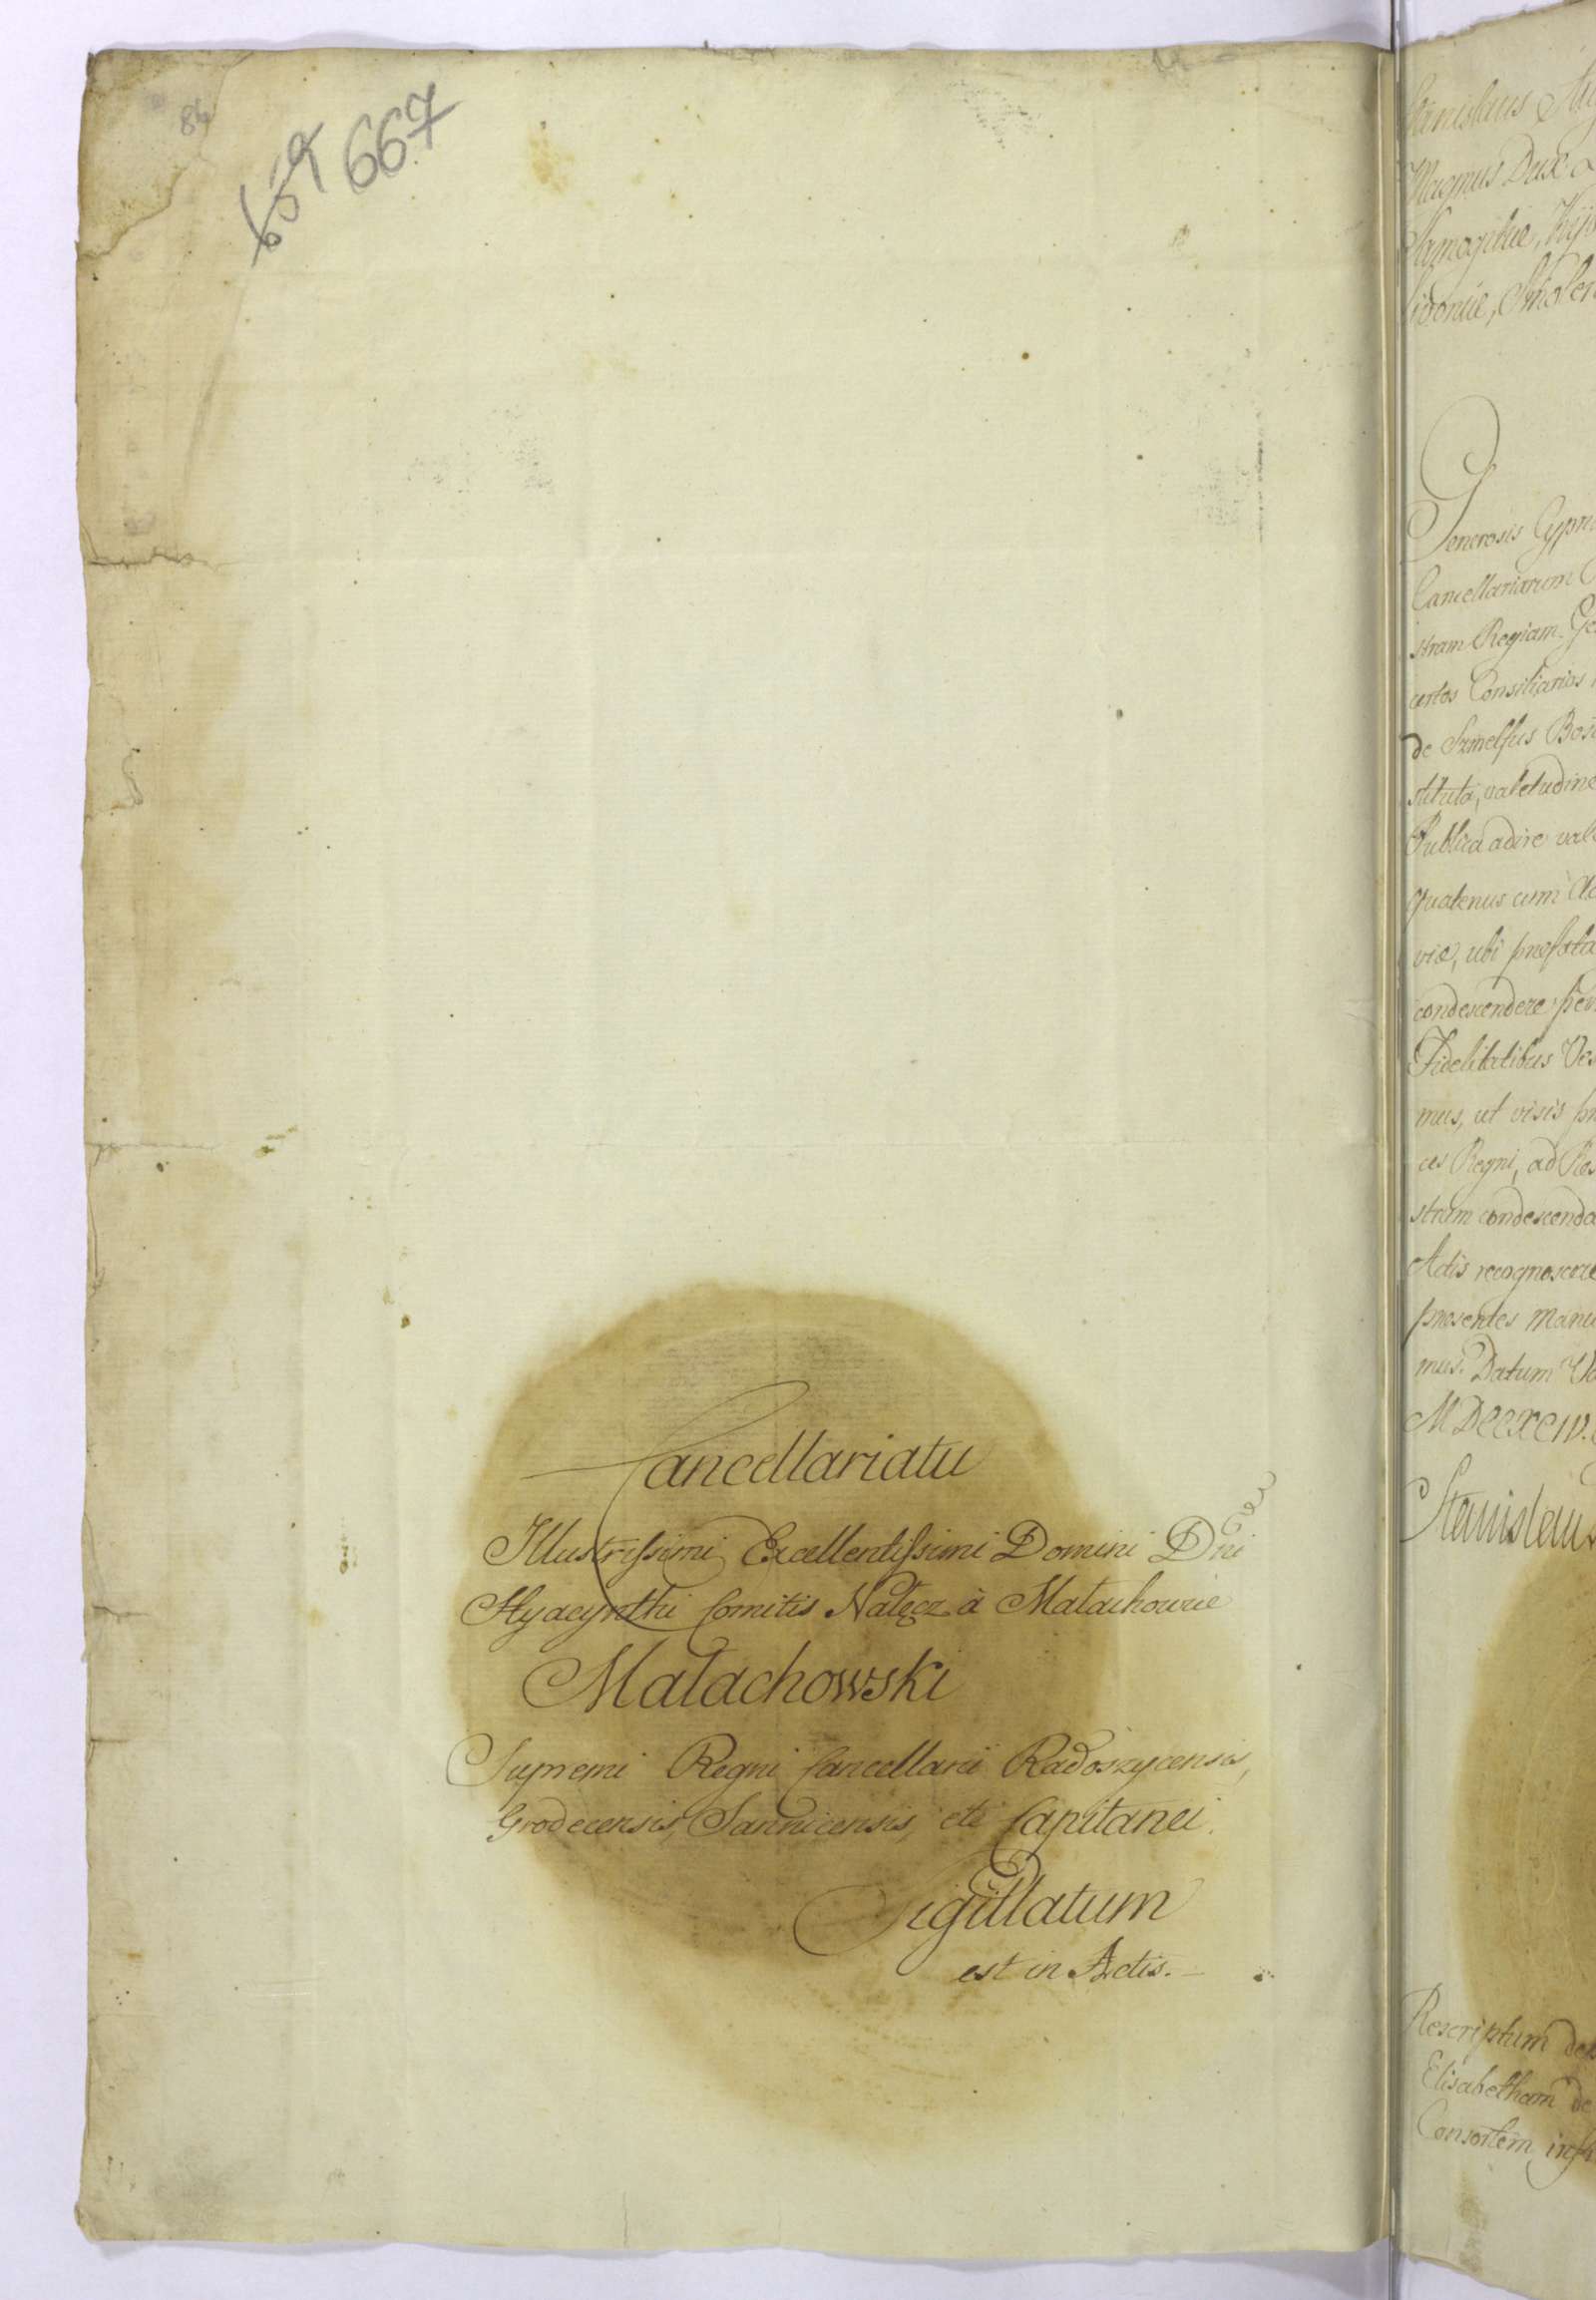 86
659 667
Cancellariatu
Illustrissimi Excellentissimi Domini Dni
Hyacynthi Comitis Nałęcz à Małachowice
Małachowski
Supremi Regni Cancellarii Radoszycensis,
Grodecensis, Sannicensis, etc Capitanei.
Sigillatum
est in Actis.
Stanislaus
Magnus Dux
Samogitiæ, Kijo
Generosis Cypri
Cancellariarum
stram Regiam. Ge
certos Consiliarios
de Szmelfus Bos
stituta, valetudine
Publica adire vale
quatenus cum
viæ, ubi præfata
condescendere
Fidelitatibus Ves
mus, ut visis
ces Regni, ad
stram condescenda
Actis recognoscere
præsentes Manu
mus. Datum
MDCCXCIV.
Stanislaus
Rescriptum
Elisabetham de
Consortem